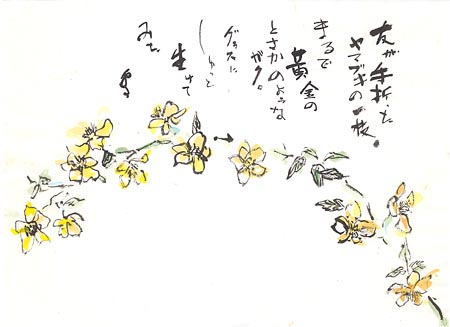 友が手折た
ヤマブキの一枝。
まるで
黄金の
とさかのような
ガク。
グラスに
しゅっと
生けて
みた。